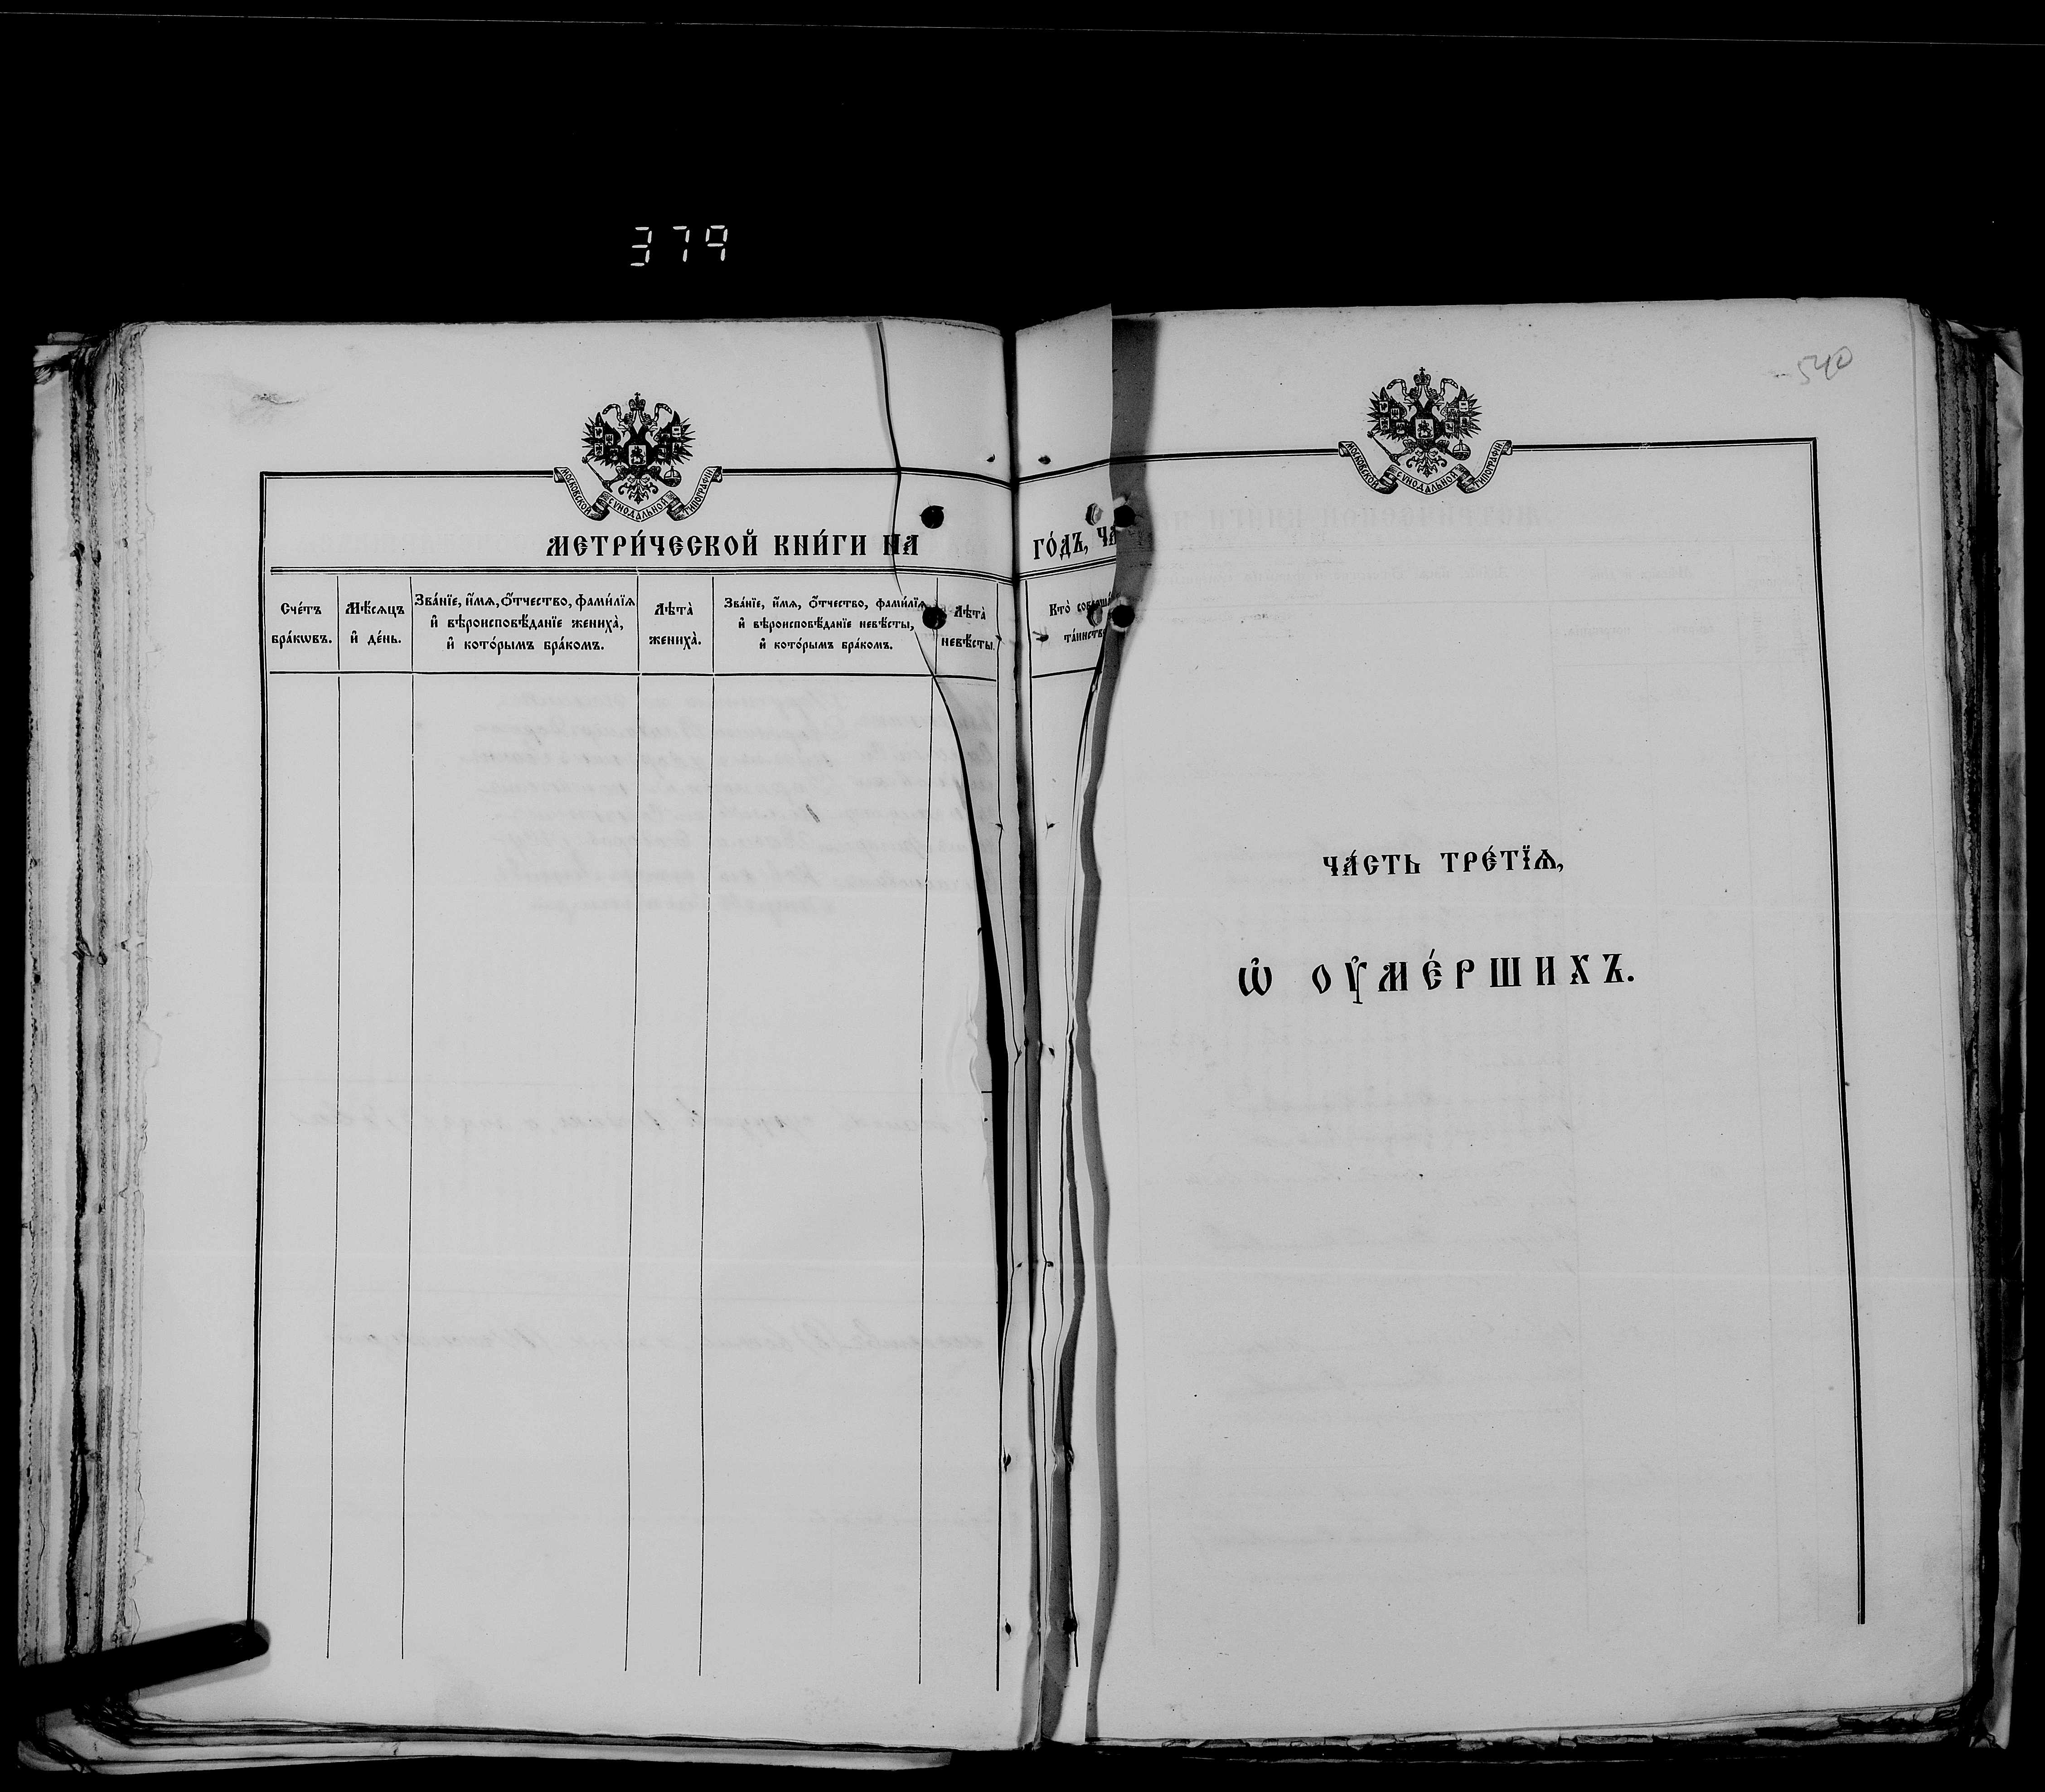 379
540
МОСКОВСКОЙ СѴНОДАЛЬНОЙ ТИПОГРАФІИ
МЕТРИ́ЧЕСКОЙ КНИ́ГИ НА
Сче́тъ бра́кѡвъ.
Мѣ́сѧцъ и҆ де́нь.
Зва́нїе, и҆́мѧ, ѻ҆́тчество, фами́лїѧ
и҆ вѣроисповѣ́данїе жениха̀,
и҆ кото́рымъ бра́комъ.
Лѣта̀ жениха̀.
Зва́нїе, и҆́мѧ, ѻ҆́тчество, фами́лїѧ
и҆ вѣроисповѣ́данїе невѣ́сты,
и҆ кото́рымъ бра́комъ.
Лѣта̀ невѣ́сты.
ГО́ДЪ, ЧА
Кто̀ соверша́
та́инств
МОСКОВСКОЙ СѴНОДАЛЬНОЙ ТИПОГРАФІИ
ЧА́СТЬ ТРЕ́ТЇѦ,
Ѡ҆ ОУ҆МЕ́РШИХЪ.